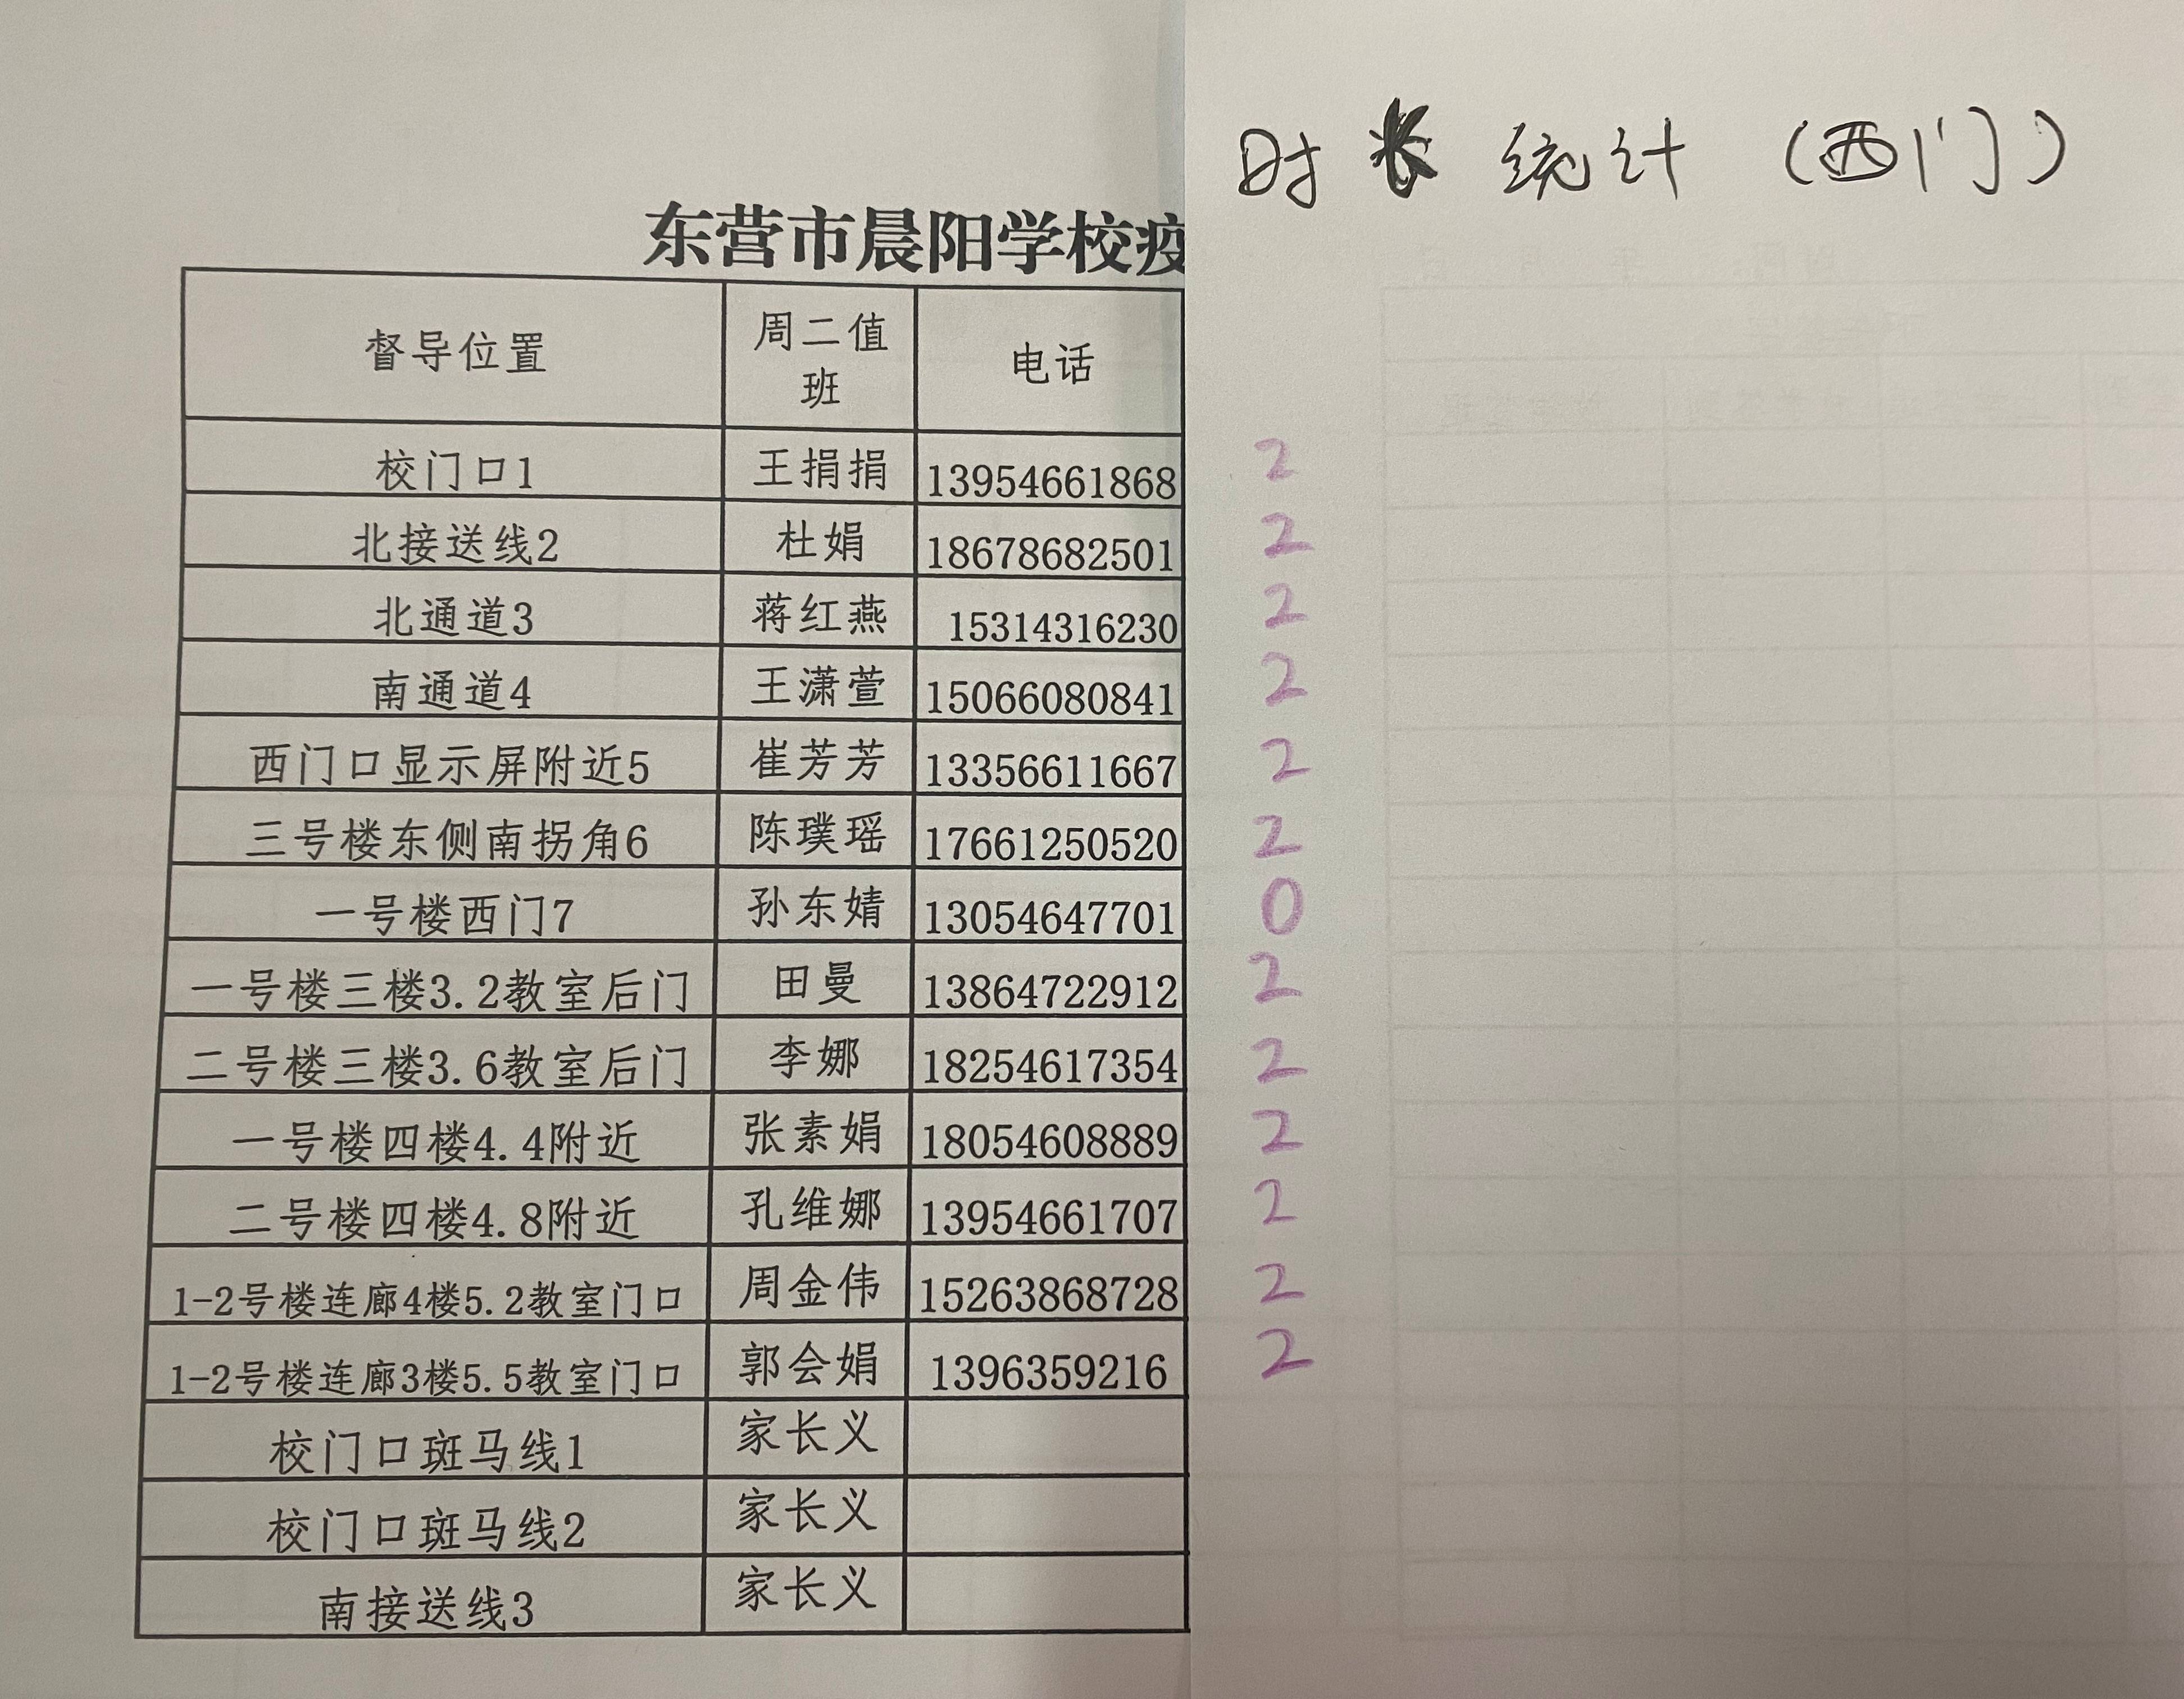 时长统计（西门）
东营市晨阳学校疫
督导位置 周二值班 电话
校门口1 王捐捐 13954661868 2
北接送线2 杜娟 18678682501 2
北通道3 蒋红燕 15314316230 2
南通道4 王潇萱 15066080841 2
西门口显示屏附近5 崔芳芳 13356611667 2
三号楼东侧南拐角6 陈璞瑶 17661250520 2
一号楼西门7 孙东婧 13054647701 0
一号楼三楼3.2教室后门 田曼 13864722912 2
二号楼三楼3.6教室后门 李娜 18254617354 2
一号楼四楼4.4附近 张素娟 18054608889 2
二号楼四楼4.8附近 孔维娜 13954661707 2
1-2号楼连廊4楼5.2教室门口 周金伟 15263868728 2
1-2号楼连廊3楼5.5教室门口 郭会娟 1396359216 2
校门口斑马线1 家长义
校门口斑马线2 家长义
南接送线3 家长义